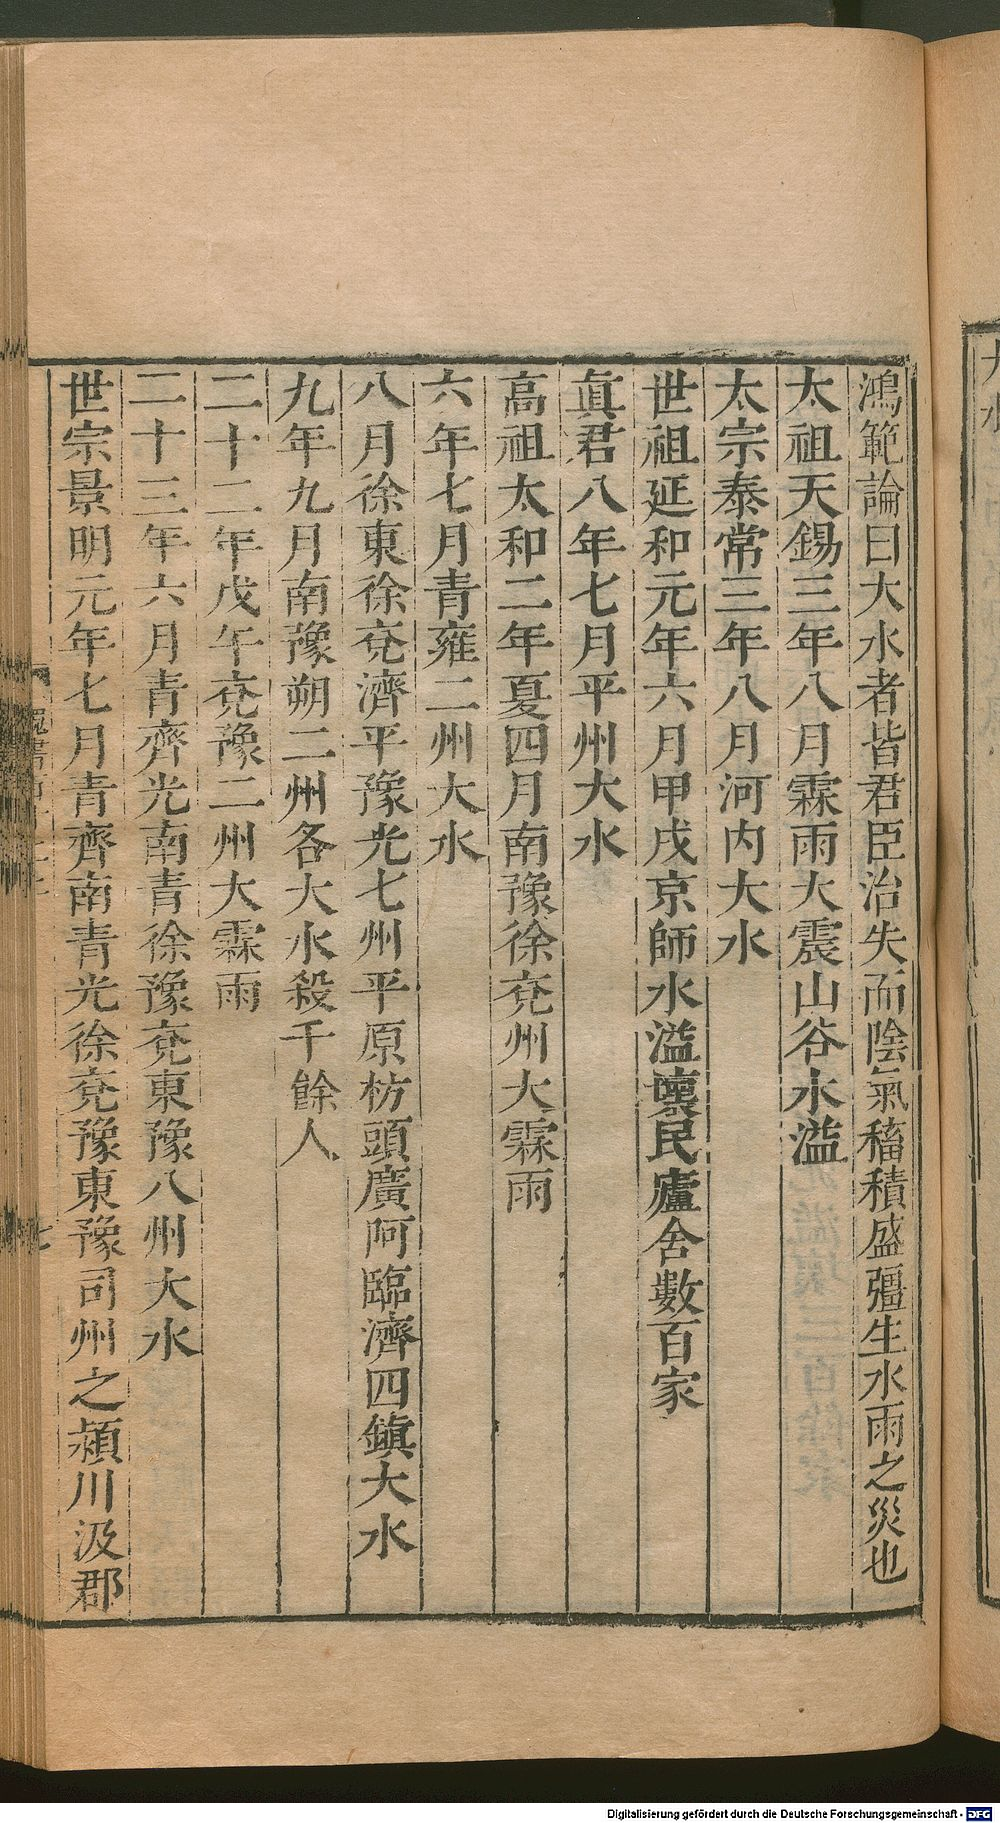 鴻範論曰大水者皆君臣治失而陰氣稸積盛彊生水雨之災也
太祖天錫三年八月霖雨大震山谷水溢
太宗泰常三年八月河内大水
世祖延和元年六月甲戌京師水溢壞民廬舍數百家
眞君八年七月平州大水
高祖太和二年夏四月南豫徐兗州大霖雨
六年七月青雍二州大水
八月徐東徐兗濟平豫光七州平原枋頭廣阿臨濟四鎭大水
九年九月南豫朔二州各大水殺千餘人
二十二年戊午兗豫二州大霖雨
二十三年六月青齊光南青徐豫兗東豫八州大水
世宗景明元年七月青齊南青光徐兗豫東豫司州之潁川汲郡
魏書
七
Digitalisierung gefördert durch die Deutsche Forschungsgemeinschaft - DFG